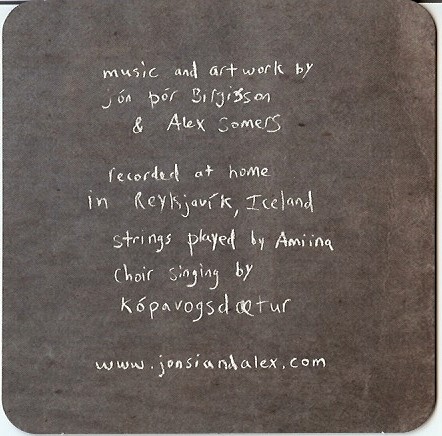 music and artwork by
jón þór Birgisson
& Alex Somers
recorded at home
in Reykjavík, Iceland
strings played by Amiina
choir singing by
kópavogsdætur
www.jonsiandalex.com